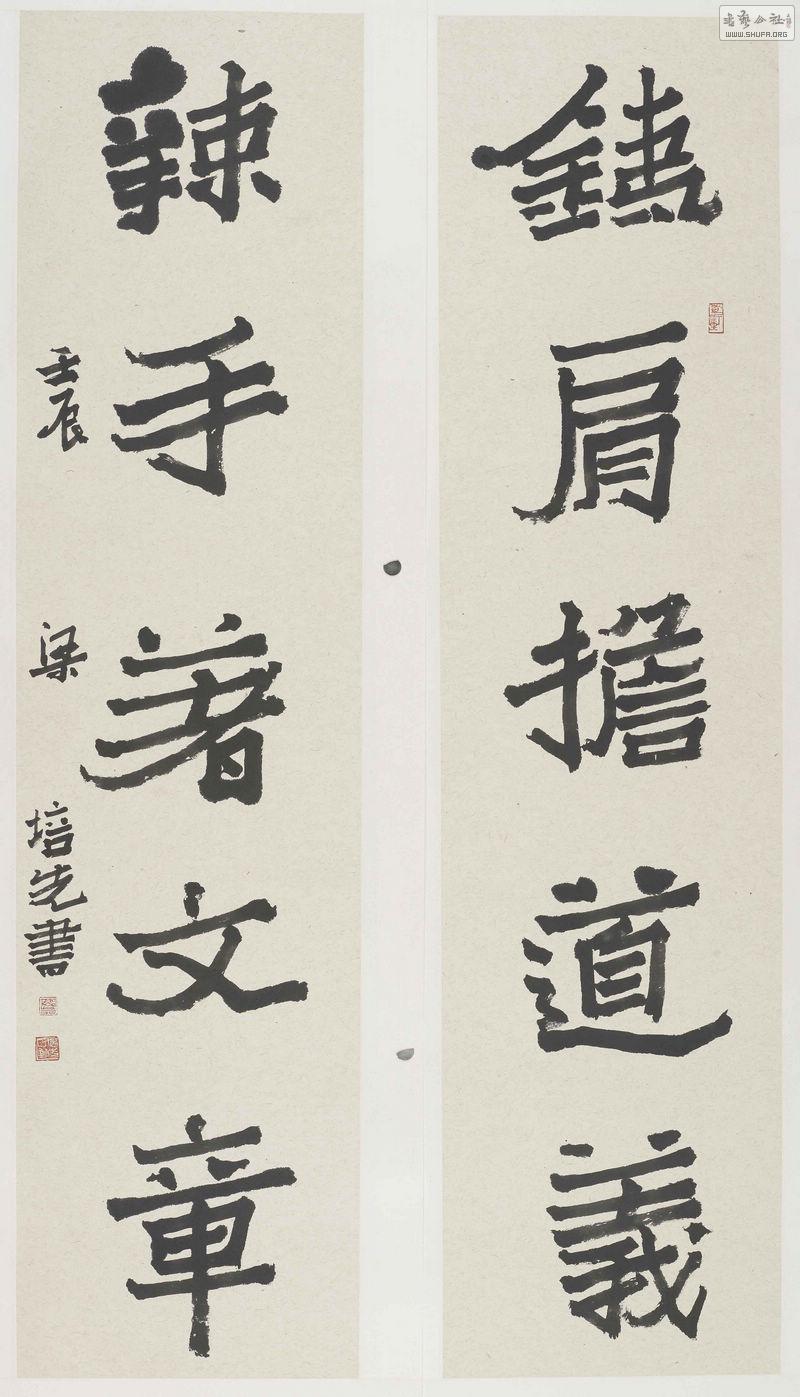 鐵肩擔道義
辣手著文章
壬辰 梁培先書
書藝公社
WWW.SHUFA.ORG